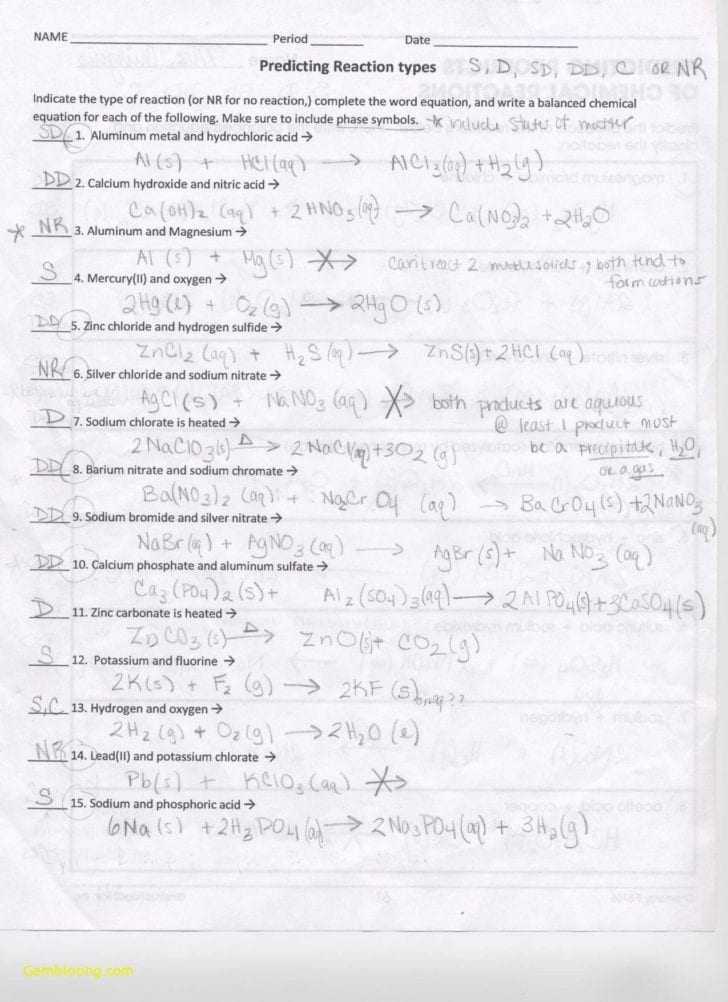 NAME Period Date
Predicting Reaction types S, D, SD, DD, C OR NR
Indicate the type of reaction (or NR for no reaction,) complete the word equation, and write a balanced chemical
equation for each of the following. Make sure to include phase symbols. * include State of matter
SD 1. Aluminum metal and hydrochloric acid →
Al(s) + HCl(aq) → AlCl3(aq) + H2(g)
DD 2. Calcium hydroxide and nitric acid →
Ca(OH)2 (aq) + 2HNO3(aq) → Ca(NO3)2 + 2H2O
* NR 3. Aluminum and Magnesium →
Al (s) + Mg(s) → can't react 2 solids, both tend to
form cations
S 4. Mercury(II) and oxygen →
2Hg(l) + O2(g) → 2HgO(s)
DD 5. Zinc chloride and hydrogen sulfide →
ZnCl2 (aq) + H2S(aq) → ZnS(s) + 2HCl (aq)
NR 6. Silver chloride and sodium nitrate →
AgCl(s) + NaNO3 (aq) → both products are aqueous
@ least 1 product must
D 7. Sodium chlorate is heated →
2NaClO3(s) Δ→ 2NaCl(aq) + 3O2 (g) be a precipitate, H2O,
or a gas
DD 8. Barium nitrate and sodium chromate →
Ba(NO3)2 (aq) + Na2CrO4 (aq) → BaCrO4(s) + 2NaNO3
(aq)
DD 9. Sodium bromide and silver nitrate →
NaBr(aq) + AgNO3(aq) → AgBr(s) + NaNO3 (aq)
DD 10. Calcium phosphate and aluminum sulfate →
Ca3(PO4)2(s) + Al2(SO4)3(aq) → 2AlPO4(s) + 3CaSO4(s)
D 11. Zinc carbonate is heated →
ZnCO3(s) Δ→ ZnO(s) + CO2(g)
S 12. Potassium and fluorine →
2K(s) + F2 (g) → 2KF (s)
S,C 13. Hydrogen and oxygen →
2H2 (g) + O2(g) → 2H2O (l)
NR 14. Lead(II) and potassium chlorate →
Pb(s) + KClO3(aq) →
S 15. Sodium and phosphoric acid →
6Na(s) + 2H3PO4(aq) → 2Na3PO4(aq) + 3H2(g)
Gembloong.com